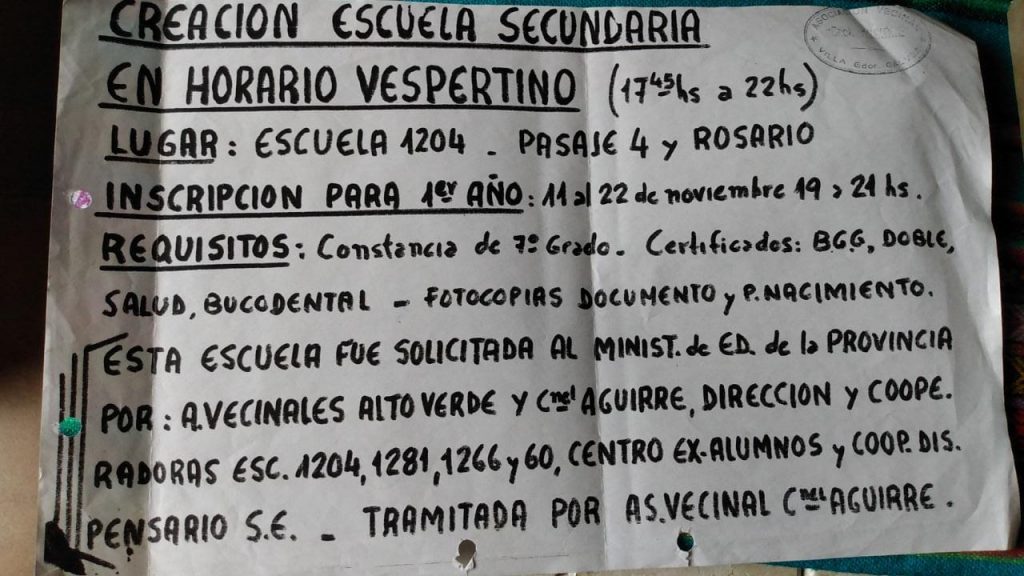 CREACION ESCUELA SECUNDARIA
EN HORARIO VESPERTINO (17⁴⁵hs a 22hs)
LUGAR: ESCUELA 1204 - PASAJE 4 y ROSARIO
INSCRIPCION PARA 1er AÑO: 11 al 22 de noviembre 19 a 21 hs.
REQUISITOS: Constancia de 7º Grado. Certificados: B.G.G, DOBLE,
SALUD, BUCODENTAL - FOTOCOPIAS DOCUMENTO y P. NACIMIENTO.
ESTA ESCUELA FUE SOLICITADA AL MINIST. de ED. de la PROVINCIA
POR: A.VECINALES ALTO VERDE Y Cnel AGUIRRE, DIRECCION y COOPE.
RADORAS ESC. 1204, 1281, 1266 y 60, CENTRO EX-ALUMNOS y COOP. DIS.
PENSARIO S.E. - TRAMITADA POR AS.VECINAL Cnel AGUIRRE.
VILLA Gdor.